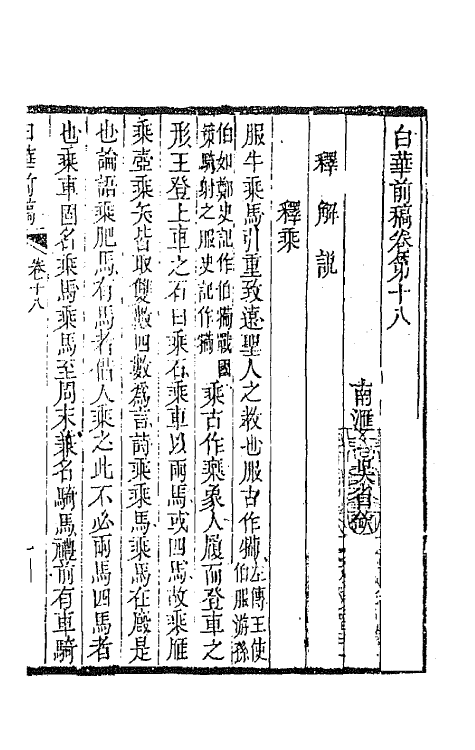 白華前稿卷第十八
南滙吳省欽
釋解說
釋乘
服牛乘馬引重致遠聖人之敎也服古作犕左傳王使伯服游孫
伯如鄭史記作伯犕戰國策騎射之服史記作犕乘古作椉象人履而登車之
形王登上車之石曰乘石乘車以兩馬或四馬故乘雁
乘壺乘矢皆取雙數四數爲言詩乘乘馬乘馬在廄是
也論語乘肥馬有馬者借人乘之此不必兩馬四馬者
也乘車固名乘馬乘馬至周末兼名騎馬禮前有車騎
白華前稿
卷十八
一